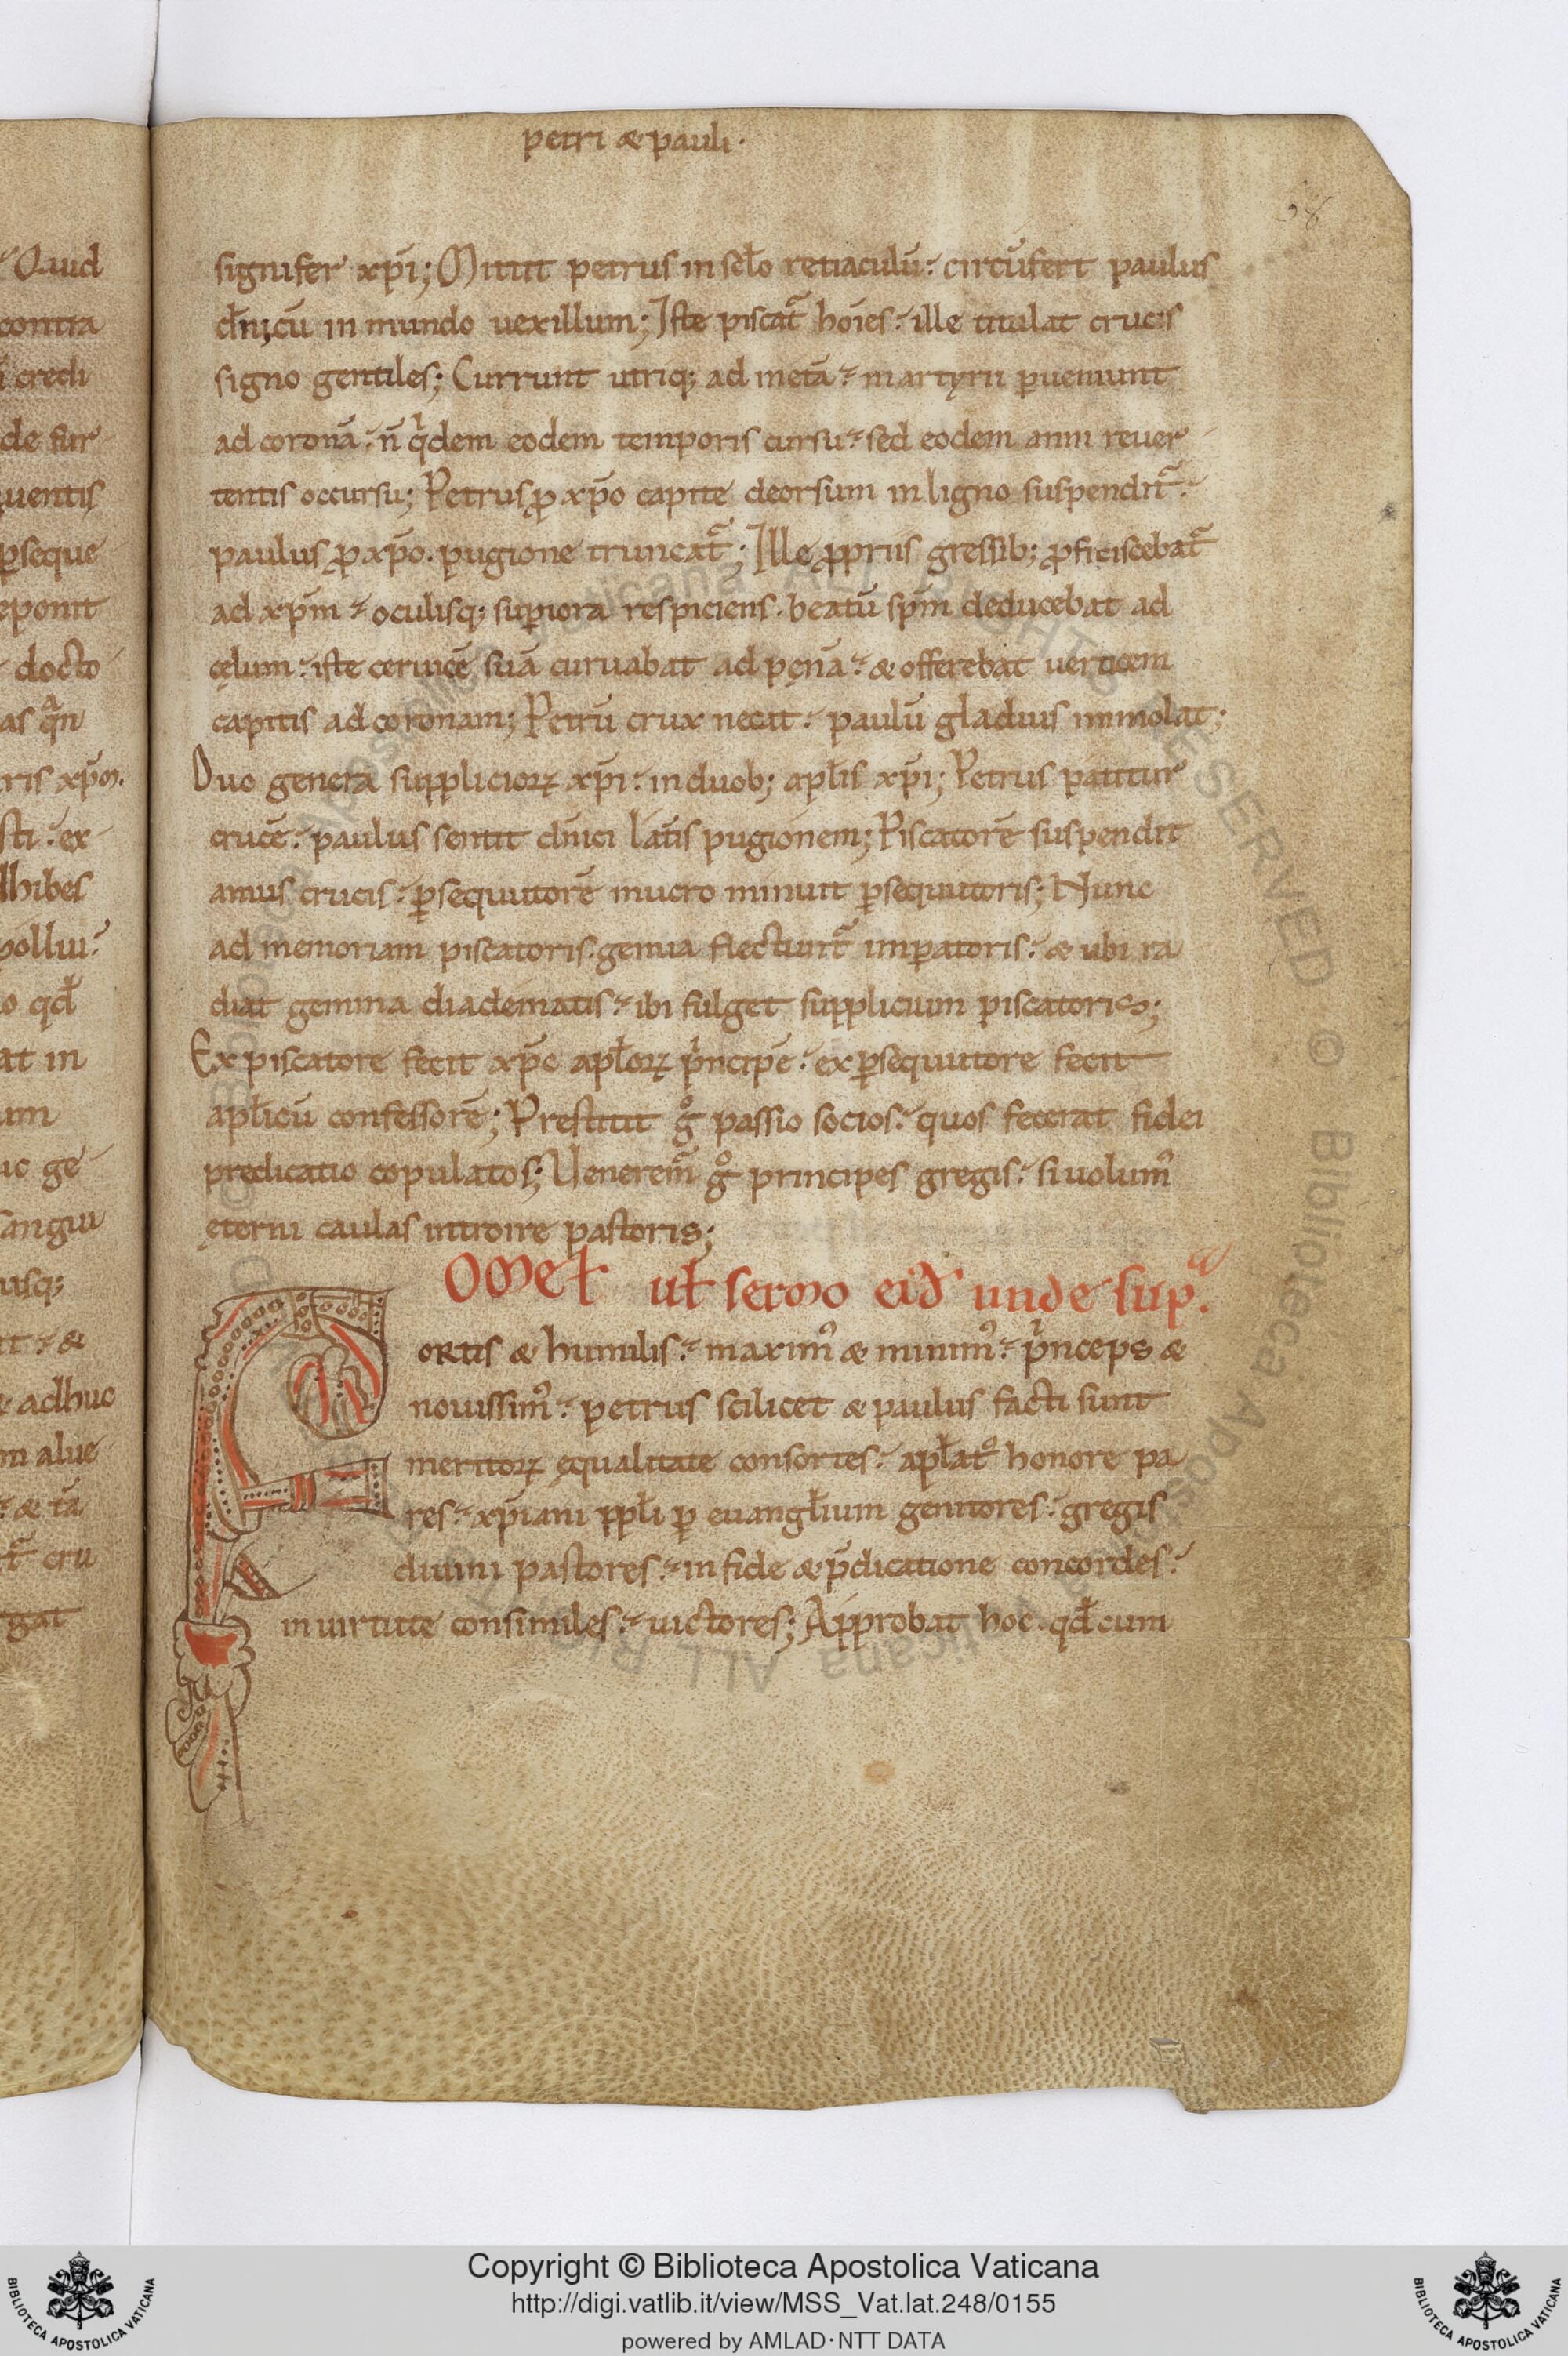 petri & pauli.
38
signifer xp̄i; Mittit petrus in sc̄lo retiaculū. circūfert paulus
dn̄icū in mundo uexillum; Iste piscat̄ hoīes. ille titulat crucis
signo gentiles; Currunt utriq; ad metā. martyrii ꝑueniunt
ad coronā. n̄ qͥdem eodem temporis cursu. sed eodem anni reuer
tentis occursu; Petrus ꝓ xp̄o capite deorsum in ligno suspendit̄.
paulus ꝓ xp̄o. pugione truncat̄; Ille ꝓpriis gressib; ꝓficiscebat̄
ad xp̄m. oculisq; suꝑiora respiciens. beatū sp̄m deducebat ad
cęlum. iste ceruicē suā curuabat ad pęnā. & offerebat uerticem
capitis ad coronam; Petrū crux necit. paulū gladius immolat;
Duo genera supplicioꝝ xp̄i. in duob; apl̄is xp̄i; Petrus patitur
crucē. paulus sentit dn̄ici lat̄is pugionem; Piscatorē suspendit
amus crucis. ꝑsequutorē mucro minuit ꝑsequutoris; Nunc
ad memoriam piscatoris. genua flectunt̄ imꝑatoris. & ubi ra
diat gemma diadematis. ibi fulget supplicium piscatoris;
Ex piscatore fecit xp̄c apl̄oꝝ pͥncipē. ex ꝑsequutore fecit
apl̄icū confessorē; Prestitit gͦ passio socios. quos fecerat fidei
predicatio copulatos; Uenerem̄ gͦ principes gregis. si uolumꝰ
ęterni caulas introire pastoris;
Omel̄ ul̄ sermo eiđ unde supͣ.
Fortis & humilis. maximꝰ & minimꝰ. pͥnceps &
nouissimꝰ. petrus scilicet & paulus facti sunt
meritoꝝ ęqualitate consortes. apl̄atꝰ honore pa
res. xp̄iani ppl̄i ꝑ euangl̄ium genitores. gregis
diuini pastores. in fide & p̄dicatione concordes.
in uirtute consimiles. uictores; Approbat hoc. qđ cum
Quid
contra
credi
de fur
quentis
ꝑseque
eponit
docto
as qͣn
ris xp̄m.
sti. ex
dhibes
pollui.
o qđ
at in
um
uc ge
sangui
usq;
it. &
e adhuc
m alue
& tā
t̄ cru
gat
Copyright © Biblioteca Apostolica Vaticana
http://digi.vatlib.it/view/MSS_Vat.lat.248/0155
powered by AMLAD·NTT DATA
BIBLIOTECA APOSTOLICA VATICANA
BIBLIOTECA APOSTOLICA VATICANA